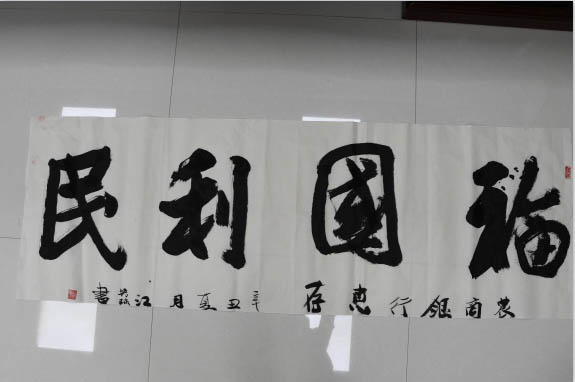 福國利民
农商银行惠存 辛丑夏月 江荔書